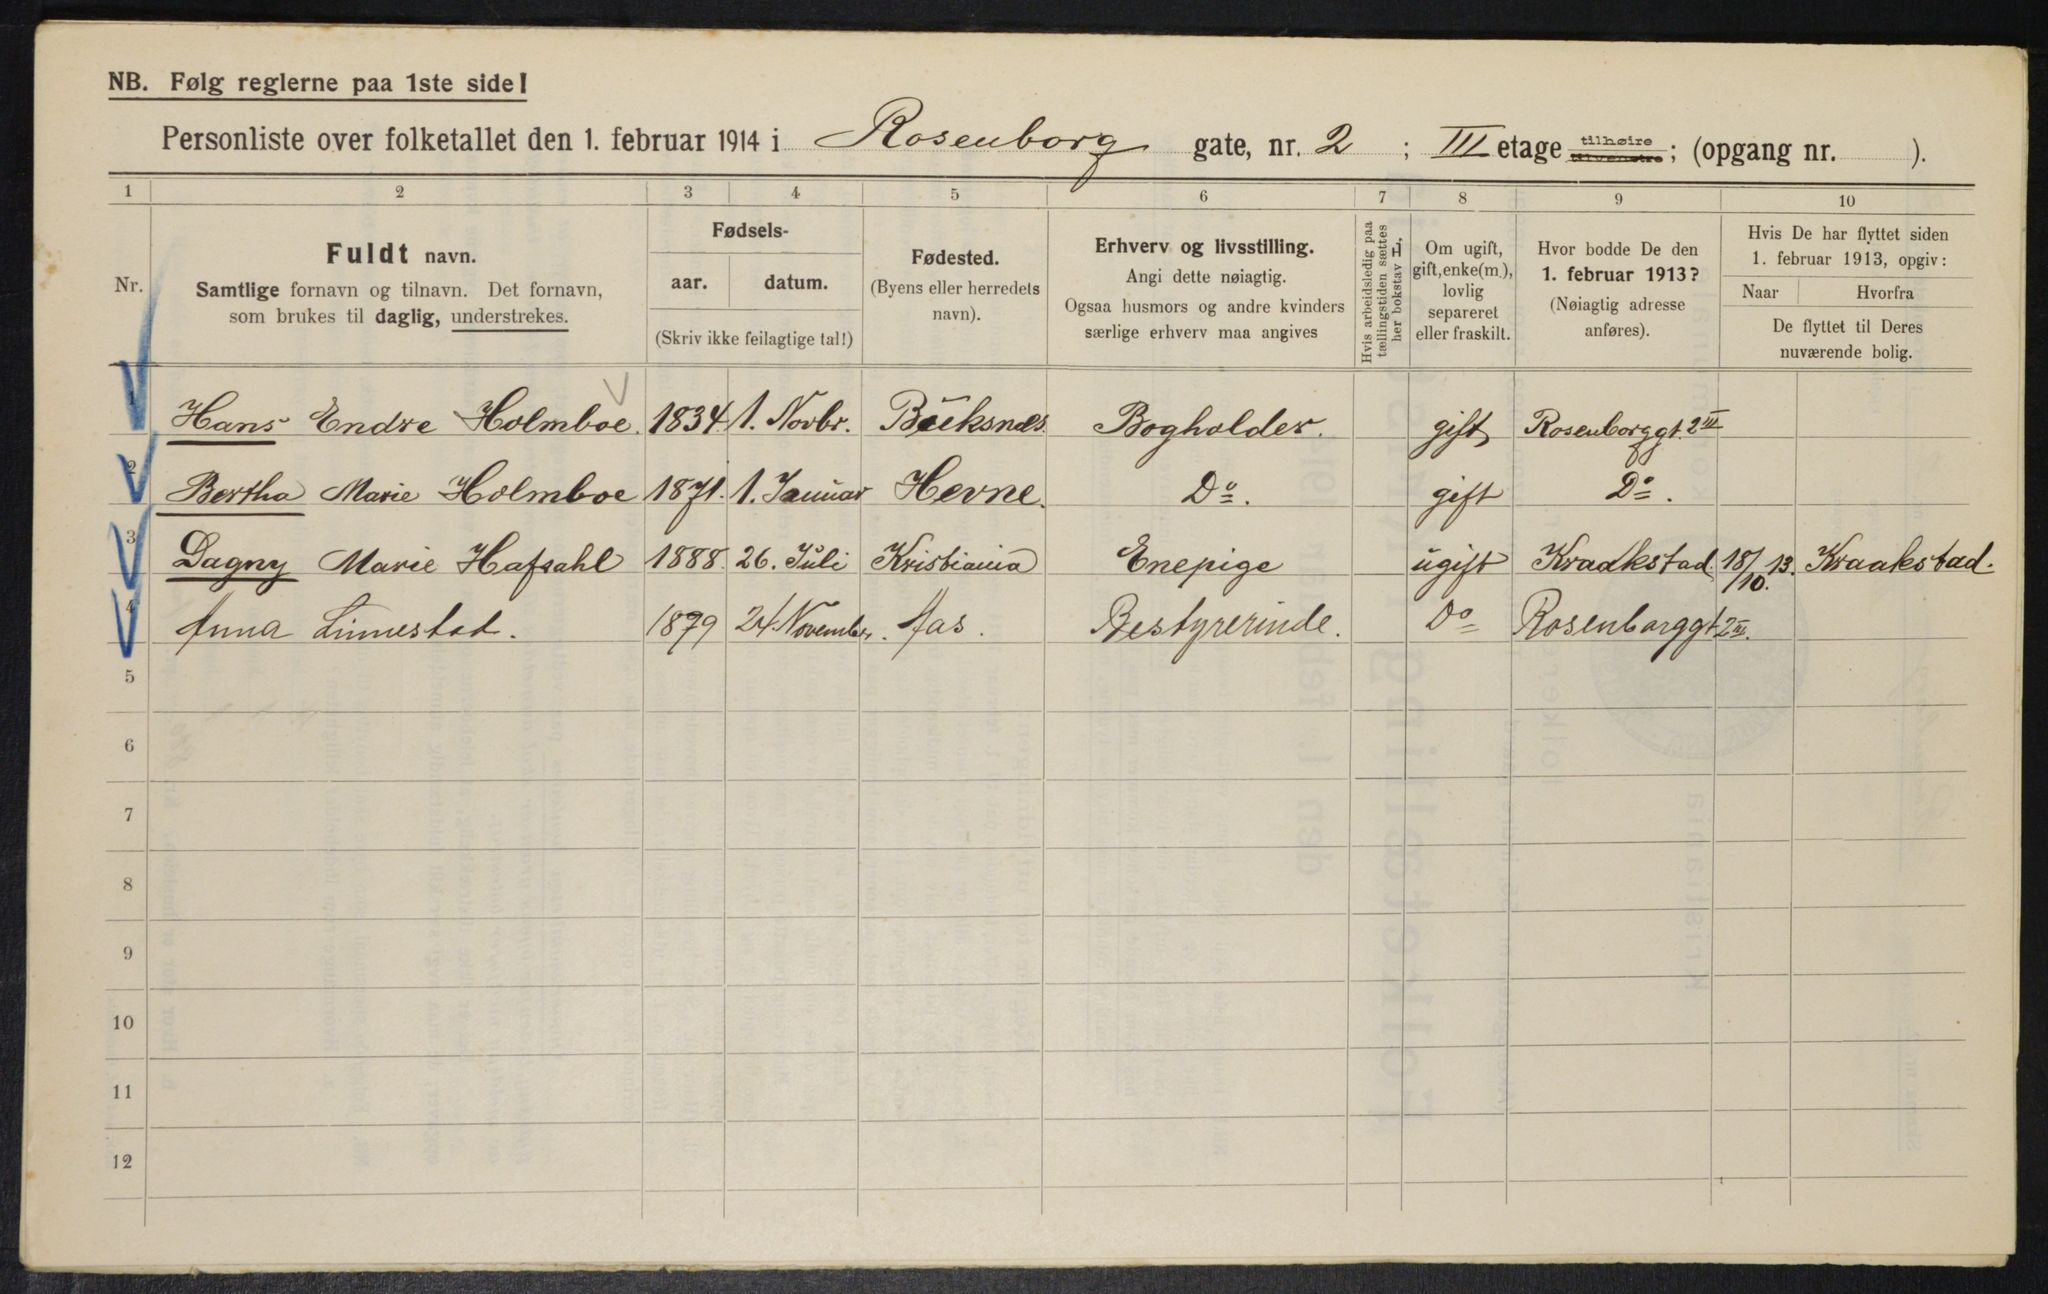 NB. Følg reglerne paa 1ste side!
Personliste over folketallet den 1. februar 1914 i Rosenborg gate, nr. 2 ; III etage tilhøire tilvenstre ; (opgang nr. ).
1 2 3 4 5 6 7 8 9 10
Nr.
Fuldt navn.
Samtlige fornavn og tilnavn. Det fornavn,
som brukes til daglig, understrekes.
Fødsels-
aar. datum.
(Skriv ikke feilagtige tal!)
Fødested.
(Byens eller herredets
navn).
Erhverv og livsstilling.
Angi dette nøiagtig.
Ogsaa husmors og andre kvinders
særlige erhverv maa angives
Hvis arbeidsledig paa
tællingstiden sættes
her bokstav L.
Om ugift,
gift, enke(m.),
lovlig
separeret
eller fraskilt.
Hvor bodde De den
1. februar 1913?
(Nøiagtig adresse
anføres).
Hvis De har flyttet siden
1. februar 1913, opgiv:
Naar Hvorfra
De flyttet til Deres
nuværende bolig.
1 Hans Endre Holmboe. 1834. 1. Novbr. Bucksnæs. Bogholder. gift Rosenborggt. 2 III
2 Bertha Marie Holmboe 1871. 1. Januar Hevne. Do. gift Do.
3 Dagny Marie Hafsahl 1888. 26. Juli Kristiania Enepige ugift Kraakstad. 18/10. 13. Kraakstad.
4 Anna Linnestad. 1879 24. Novembr. Aas. Bestyrerinde. Do Rosenborggt 2 III.
5
6
7
8
9
10
11
12